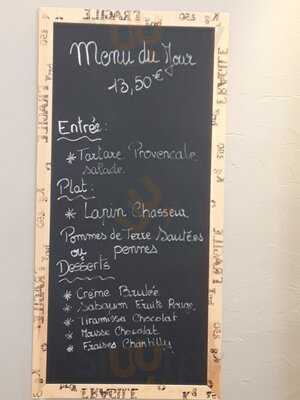 Menu du Jour
13,50€
Entrée:
* Tartare Provencale
salade
Plat:
* Lapin Chasseur
Pommes de Terre Sautées
ou pennes
Desserts
* Crème Brulée
* Sabayon Fruits Rouge
* Tiramissu Chocolat
* Mousse Chocolat
* Fraises Chantilly
FRAGILE